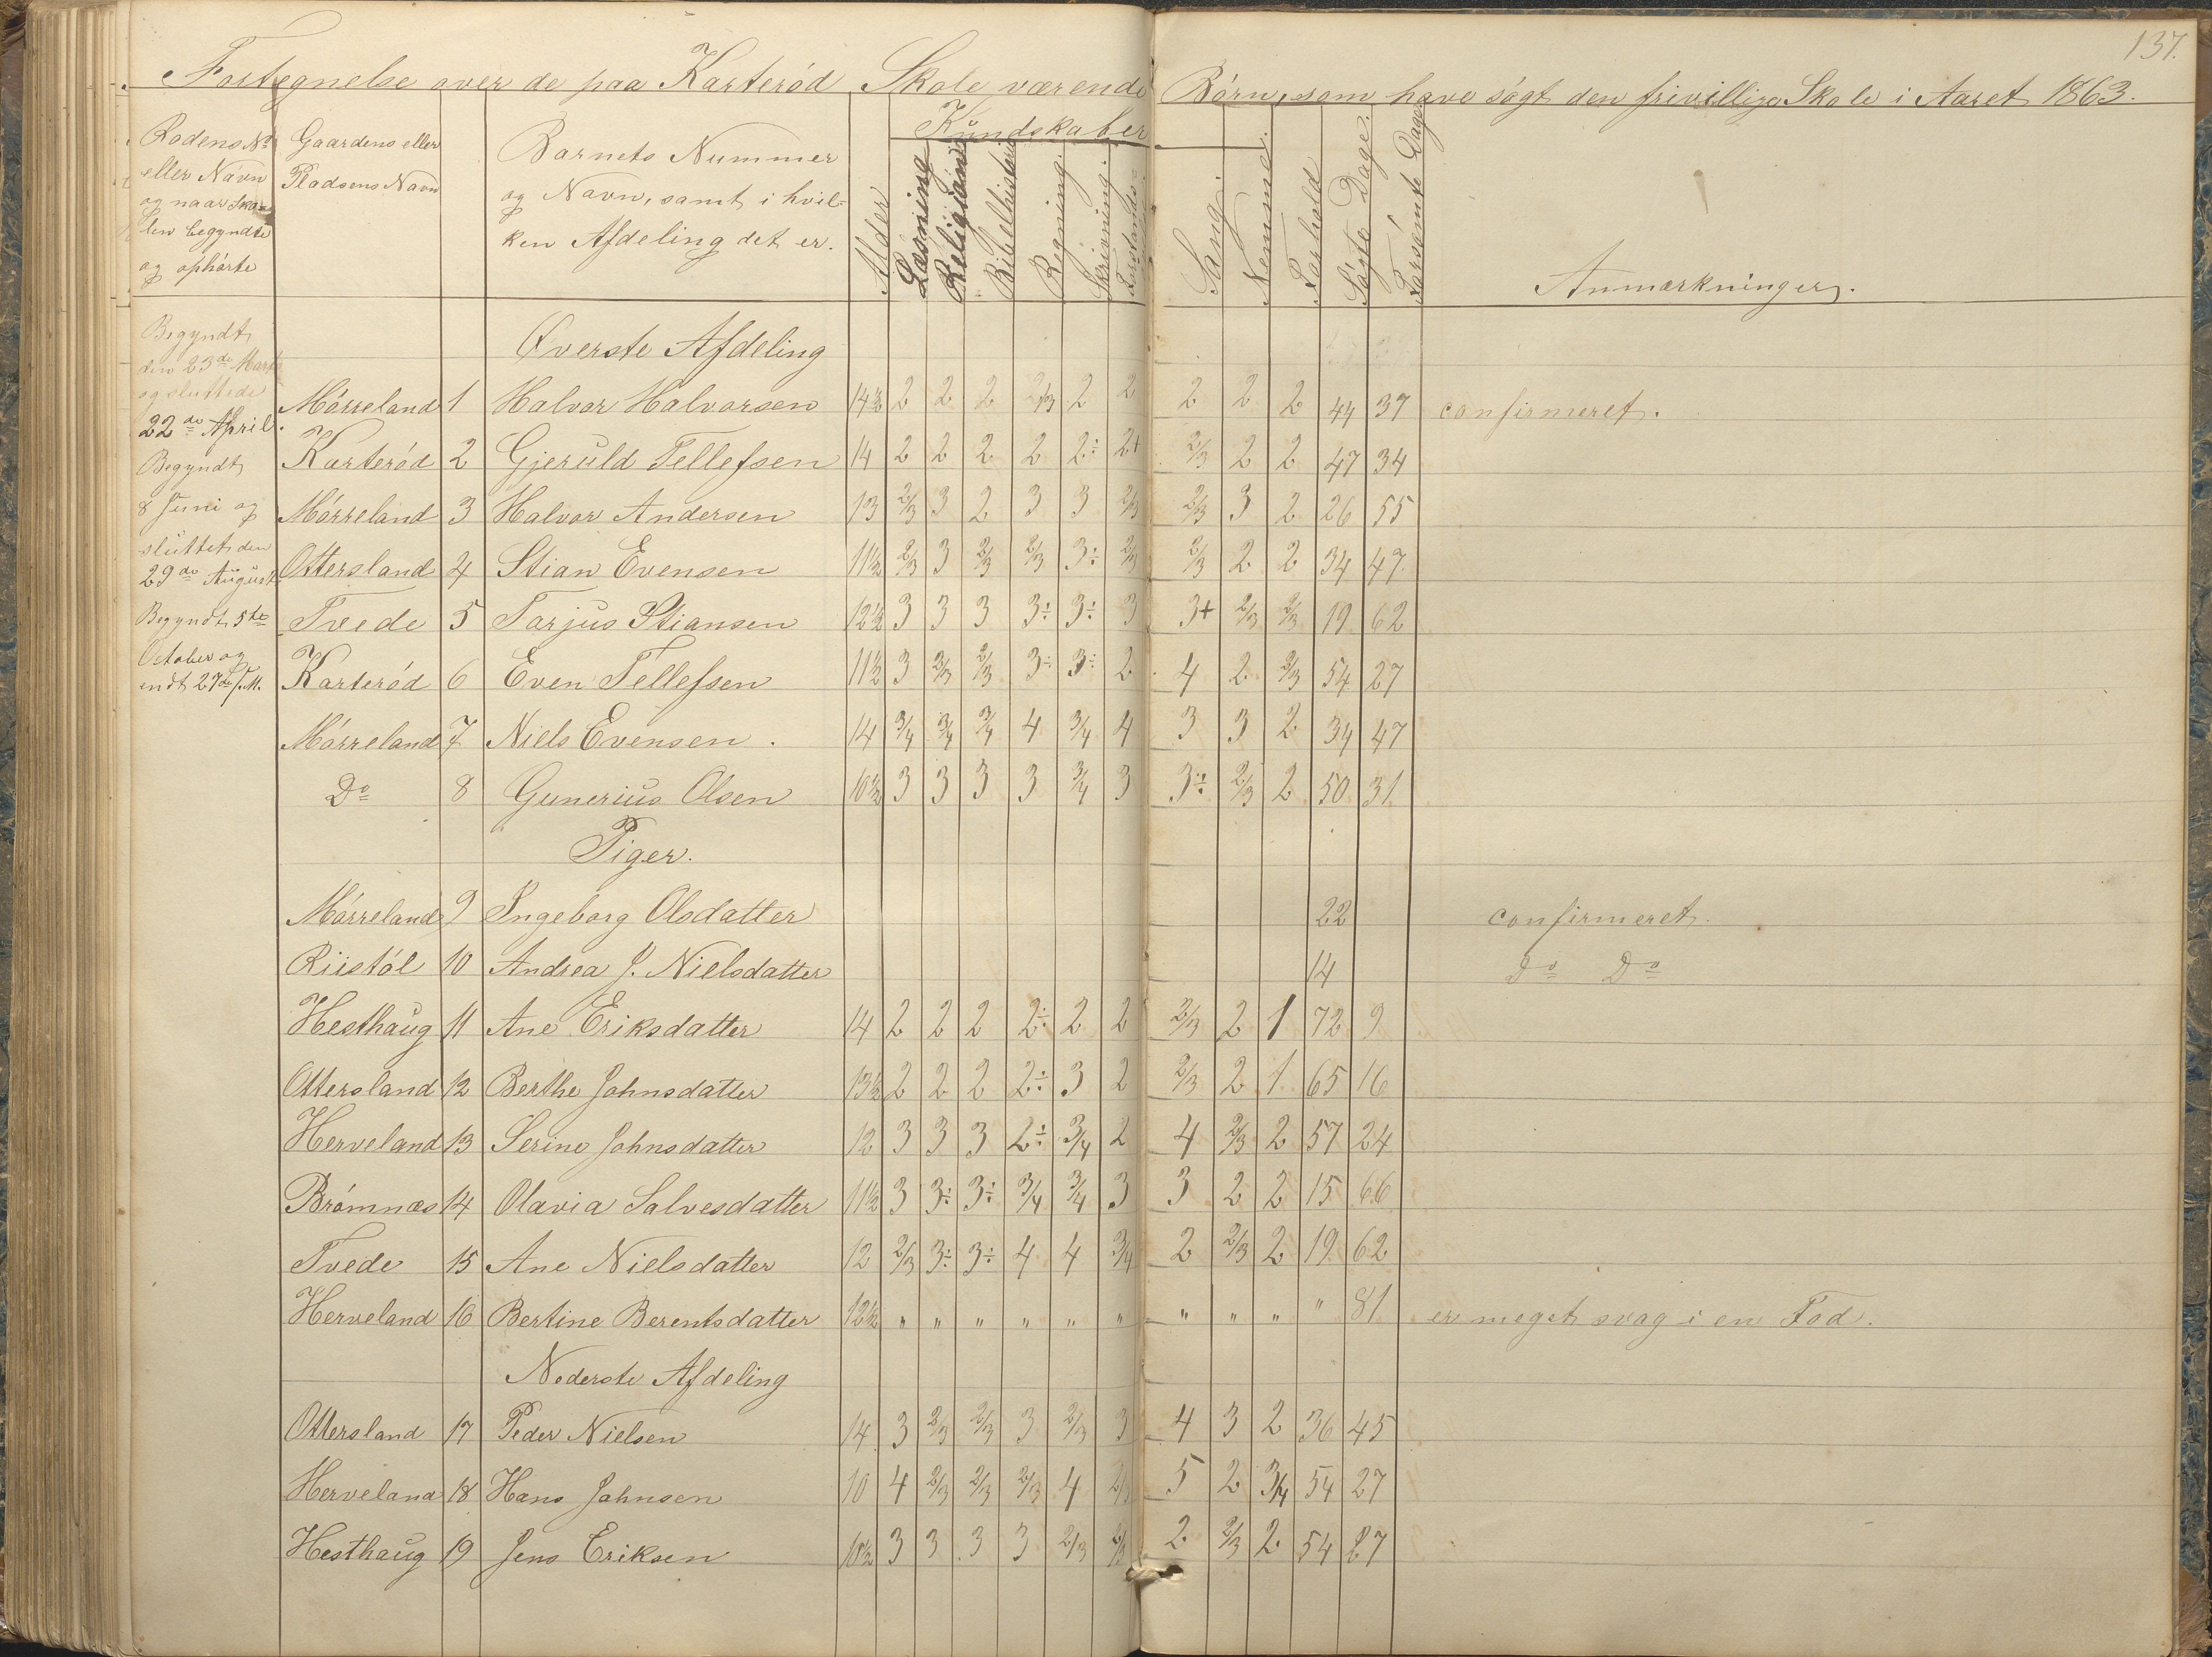 137.
Fortegnelse over de paa Karterød Skole værende Børn, som have søgt den frivillige Skole i Aaret 1863.
Rodens No eller Navn og naar Skolen begyndte og ophørte
Gaardens eller Pladsens Navn
Barnets Nummer og Navn, samt i hvilken Afdeling det er.
Alder
Kundskaber
Læsning
Religion
Bibelhistorie
Regning.
Skrivning.
Forstands=
Sang.
Nemme.
Forhold
Søgte Dage.
Forsømte Dage
Anmærkninger.
Begyndt
den 23de Marts
og sluttede
22de April.
Begyndt
8 Juni og
sluttet den
29de August
Begyndt 5te
October og
endt 27de s. M.
Øverste Afdeling
Mørreland 1 Halvor Halvorsen 14½ 2 2 2 2/3 2 2 2 2 2 44 37 confirmeret.
Karterød 2 Gjeruld Tellefsen 14 2 2 2 2 2÷ 2+ 2/3 2 2 47 34
Mørreland 3 Halvor Andersen 13 2/3 3 2 3 3 2/3 2/3 3 2 26 55
Ottersland 4 Stian Evensen 11½ 2/3 3 2/3 2/3 3÷ 2/3 2/3 2 2 34 47
Tvede 5 Tarjus Stiansen 12½ 3 3 3 3÷ 3÷ 3 3+ 2/3 2/3 19 62
Karterød 6 Even Tellefsen 11½ 3 2/3 2/3 3÷ 3÷ 2 4 2 2/3 54 27
Mørreland 7 Niels Evensen. 14 3/4 3/4 3/4 4 3/4 4 3 3 2 34 47
Do 8 Gunerius Olsen 10½ 3 3 3 3 3/4 3 3÷ 2/3 2 50 31
Piger.
Mørreland 9 Ingeborg Olsdatter 22 confirmeret.
Riistøl 10 Andrea J. Nielsdatter 14 Do Do
Hesthaug 11 Ane Eriksdatter 14 2 2 2 2÷ 2 2 2/3 2 1 72 9
Ottersland 12 Berthe Johnsdatter 13½ 2 2 2 2÷ 3 2 2/3 2 1 65 16
Herveland 13 Serine Johnsdatter 12 3 3 3 2÷ 3/4 2 4 2/3 2 57 24
Brømnæs 14 Olavia Salvesdatter 11½ 3 3÷ 3÷ 3/4 3/4 3 3 2 2 15 66
Tvede 15 Ane Nielsdatter 12 2/3 3÷ 3÷ 4 4 3/4 2 2/3 2 19 62
Herveland 16 Bertine Berentsdatter 12½ " " " " " " " " " " 81 er meget svag i en Fod.
Nederste Afdeling
Ottersland 17 Peder Nielsen 14 3 2/3 2/3 3 2/3 3 4 3 2 36 45
Herveland 18 Hans Johnsen 10 4 2/3 2/3 2/3 4 2/3 5 2 3/4 54 27
Hesthaug 19 Jens Eriksen 10½ 3 3 3 3 2/3 2/3 2 2/3 2 54 27